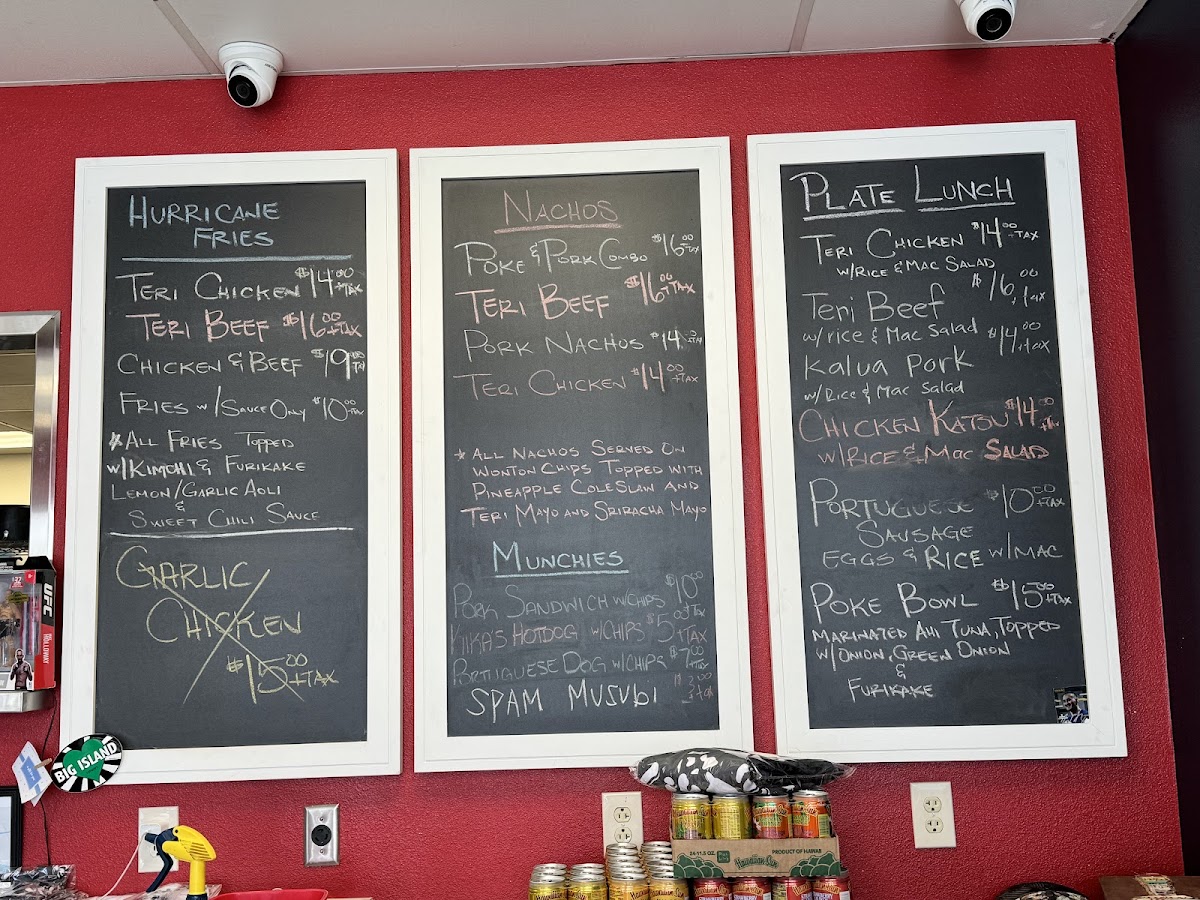 HURRICANE
FRIES
TERI CHICKEN $14.00 +TAX
TERI BEEF $16.00 +TAX
CHICKEN & BEEF $19.00 +TAX
FRIES w/SAUCE ONLY $10.00 +TAX
*ALL FRIES TOPPED
w/KIMCHI & FURIKAKE
LEMON/GARLIC AOLI
&
SWEET CHILI SAUCE
GARLIC
CHICKEN
$15.00 +TAX
NACHOS
POKE & PORK COMBO $16.00 +TAX
TERI BEEF $16.00 +TAX
PORK NACHOS $14
TERI CHICKEN $14.00 +TAX
* ALL NACHOS SERVED ON
WONTON CHIPS TOPPED WITH
PINEAPPLE COLESLAW AND
TERI MAYO AND SRIRACHA MAYO
MUNCHIES
PORK SANDWICH W/CHIPS $10.00
KIIKA'S HOTDOG W/CHIPS $5.00 +TAX
PORTIGUESE DOG W/CHIPS $7.00 +TAX
SPAM MUSUBI
PLATE LUNCH
TERI CHICKEN $14.00 +TAX
W/RICE & MAC SALAD
Teri Beef $16.00 +tax
w/rice & Mac Salad
Kalua Pork $14.00 +tax
w/Rice & Mac Salad
CHICKEN KATSU $14.00
W/RICE & MAC SALAD
PORTUGUESE $10.00 +TAX
SAUSAGE
EGGS & RICE W/MAC
POKE BOWL $15.00 +TAX
MARINATED AHI TUNA, TOPPED
W/ONION, GREEN ONION
&
FURIKAKE
UFC
HOLLOWAY
BIG ISLAND
PRODUCT OF HAWAII
Hawaiian Sun